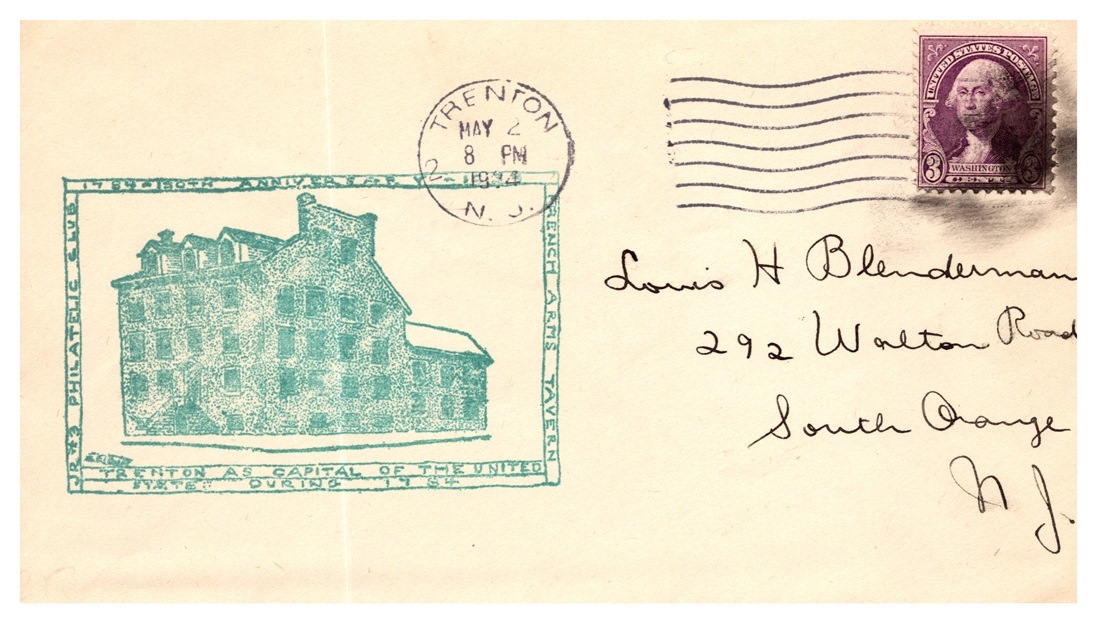 TRENTON
MAY 2
8 PM
1934
N. J.
2
UNITED STATES POSTAGE
3 WASHINGTON 3
CENTS
1784 - 150TH ANNIVERSARY
FRENCH ARMS TAVERN
JR #3 PHILATELIC CLUB
TRENTON AS CAPITAL OF THE UNITED
STATES DURING 1784
Louis H Blenderman
292 Walton Road
South Orange
N J.